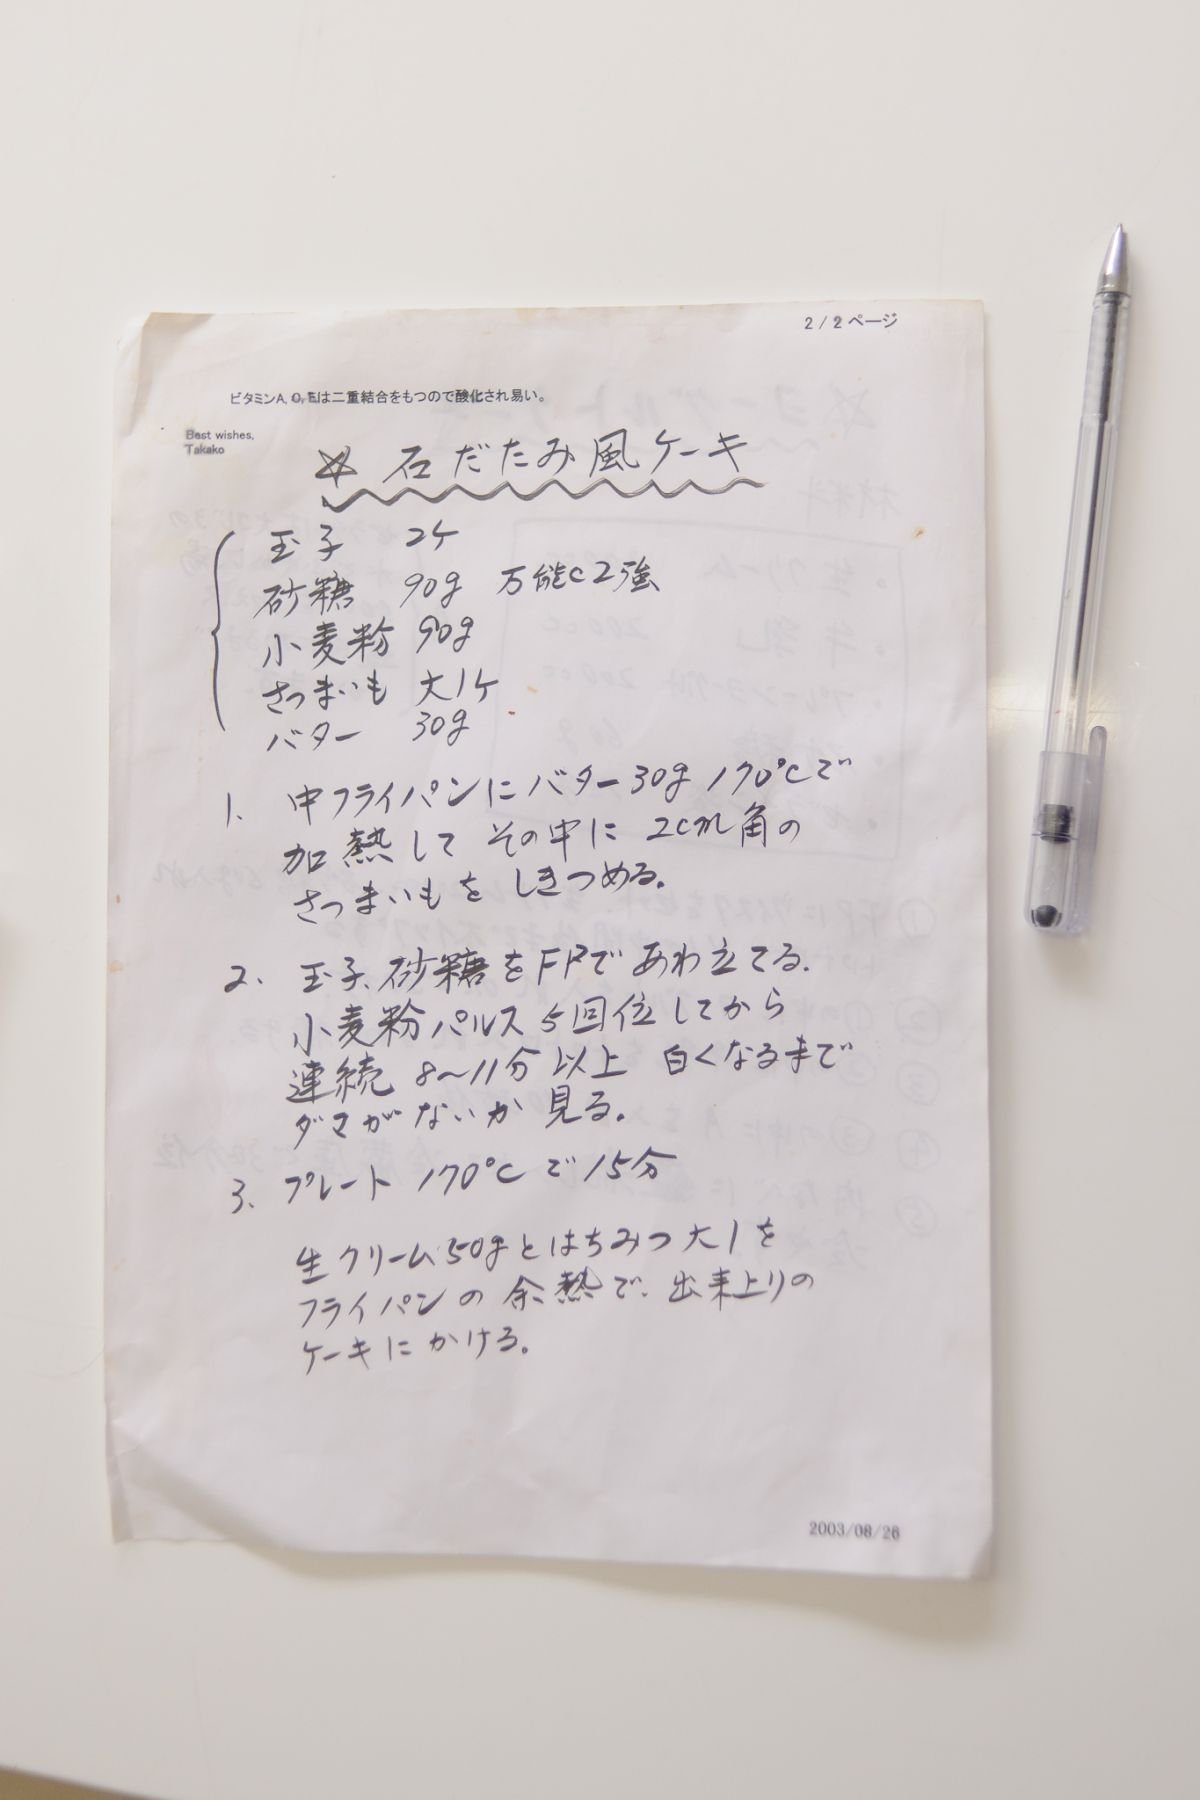 2 / 2 ページ
ビタミンA, C, Eは二重結合をもつので酸化され易い。
Best wishes,
Takako
☆ 石だたみ風ケーキ
玉子 2ケ
砂糖 90g 万能C2強
小麦粉 90g
さつまいも 大1ケ
バター 30g
1. 中フライパンにバター30g 170℃で
加熱して その中に 2cm角の
さつまいもを しきつめる。
2. 玉子、砂糖をFPであわ立てる。
小麦粉パルス 5回位してから
連続 8〜11分以上 白くなるまで
ダマがないか 見る。
3. プレート 170℃で15分
生クリーム50gとはちみつ大1を
フライパンの 余熱で、出来上りの
ケーキにかける。
2003/08/26